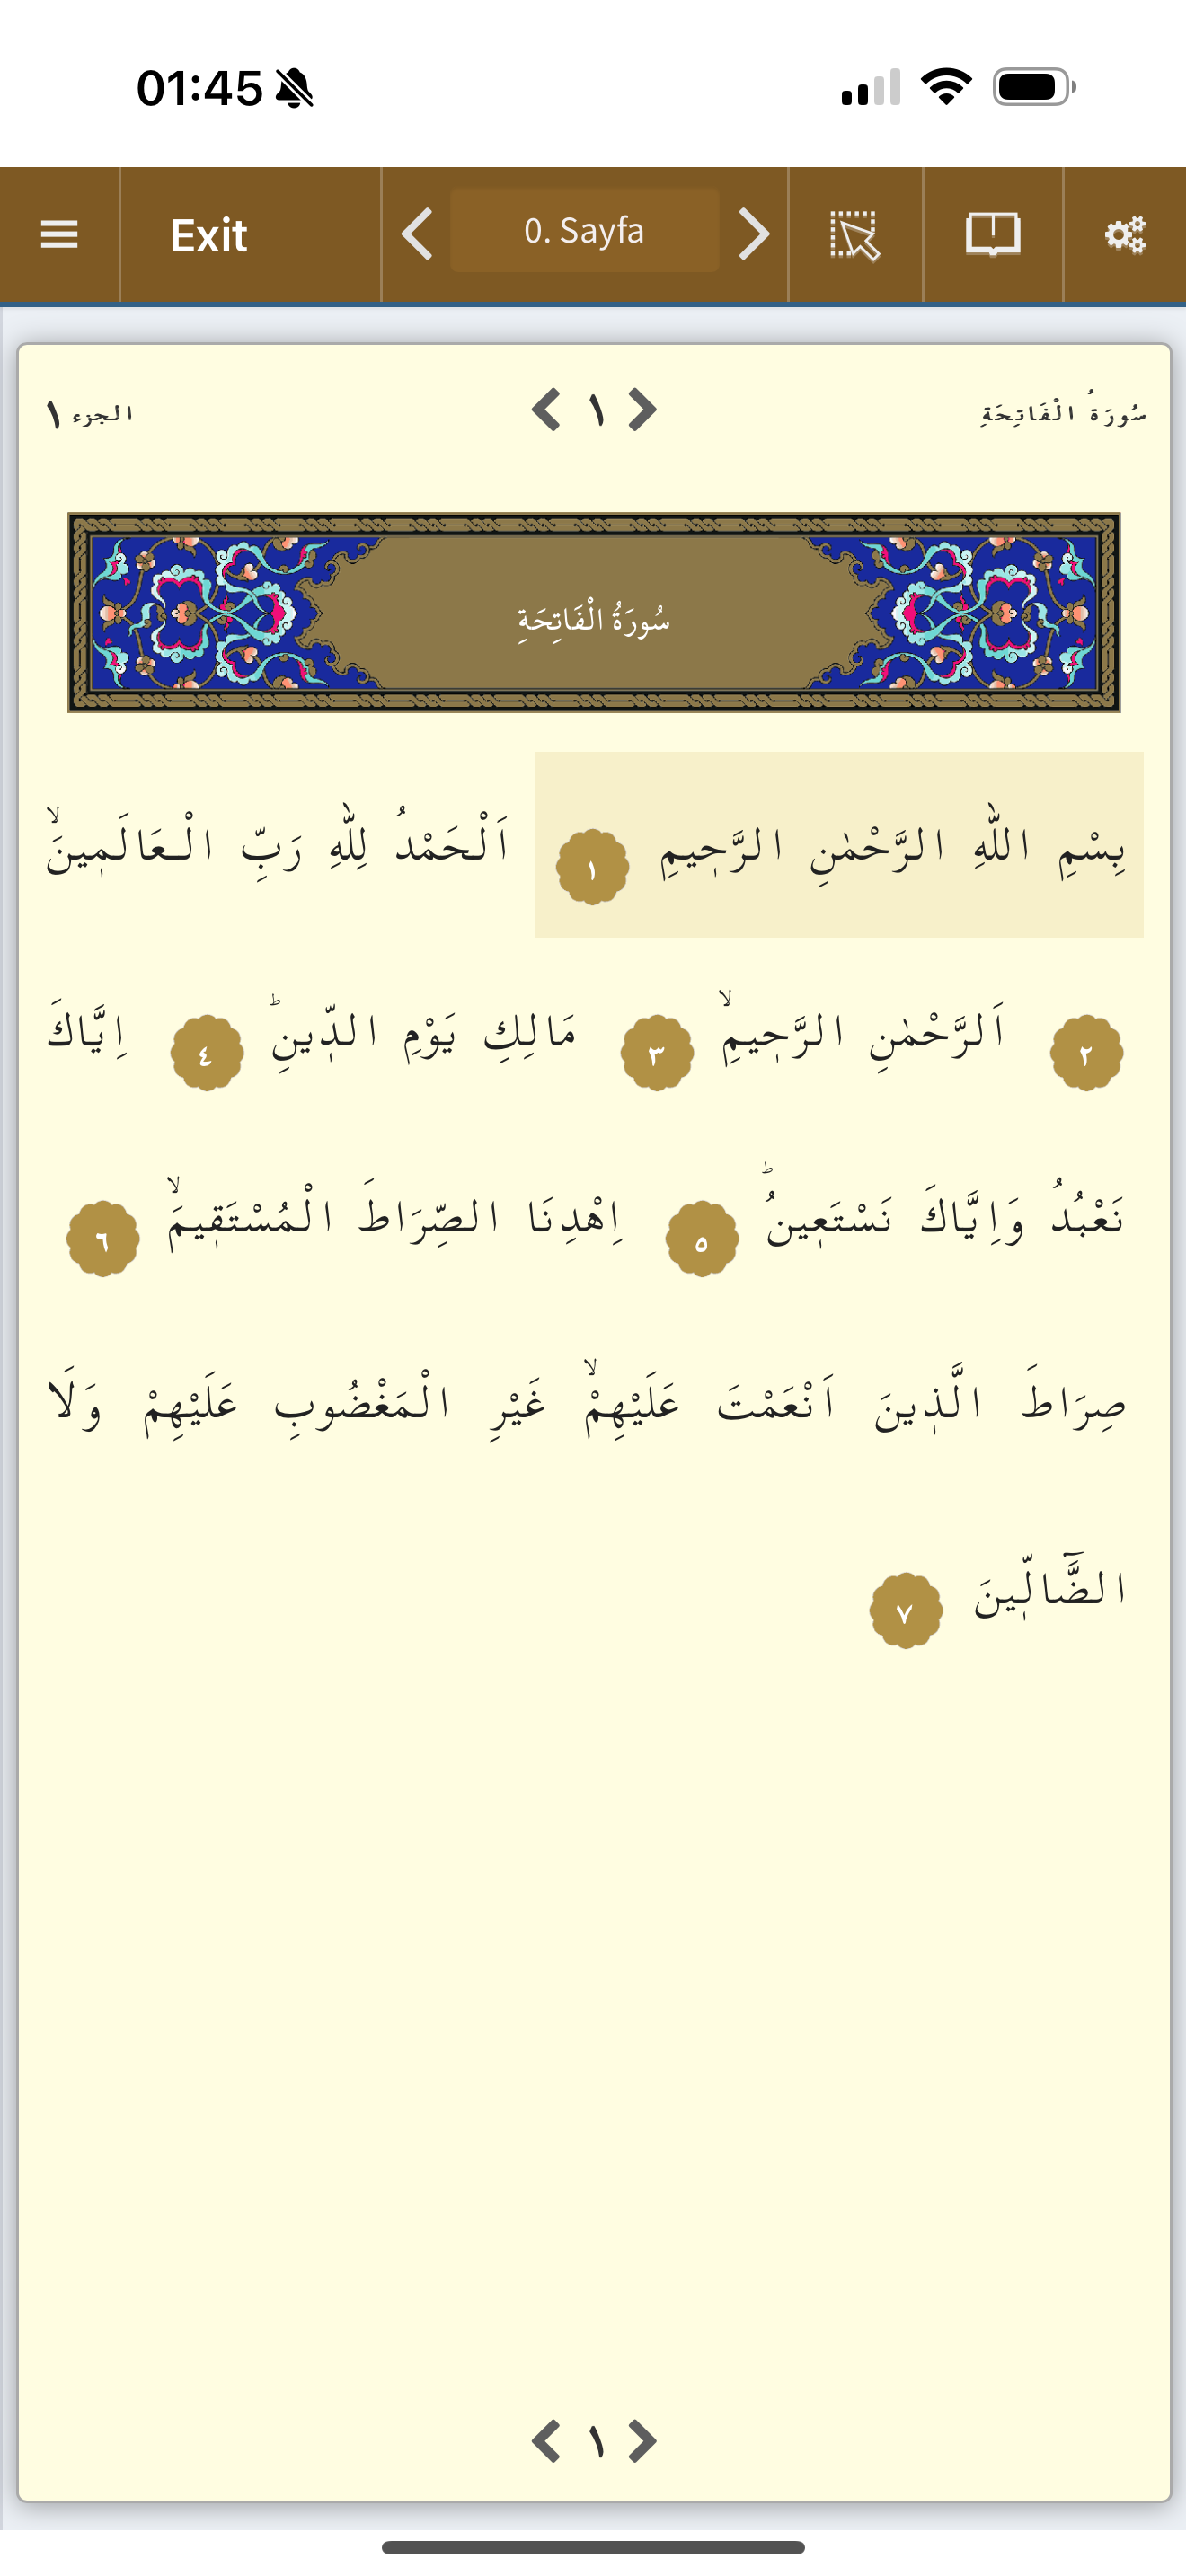 01:45
Exit
0. Sayfa
سُورَةُ الْفَاتِحَةِ
١
الجزء ١
سُورَةُ الْفَاتِحَةِ
بِسْمِ اللّٰهِ الرَّحْمٰنِ الرَّح۪يمِ ١ اَلْحَمْدُ لِلّٰهِ رَبِّ الْعَالَم۪ينَۙ
٢ اَلرَّحْمٰنِ الرَّح۪يمِۙ ٣ مَالِكِ يَوْمِ الدّ۪ينِۜ ٤ اِيَّاكَ
نَعْبُدُ وَاِيَّاكَ نَسْتَع۪ينُۜ ٥ اِهْدِنَا الصِّرَاطَ الْمُسْتَق۪يمَۙ ٦
صِرَاطَ الَّذ۪ينَ اَنْعَمْتَ عَلَيْهِمْۙ غَيْرِ الْمَغْضُوبِ عَلَيْهِمْ وَلَا
الضَّٓالّ۪ينَ ٧
١